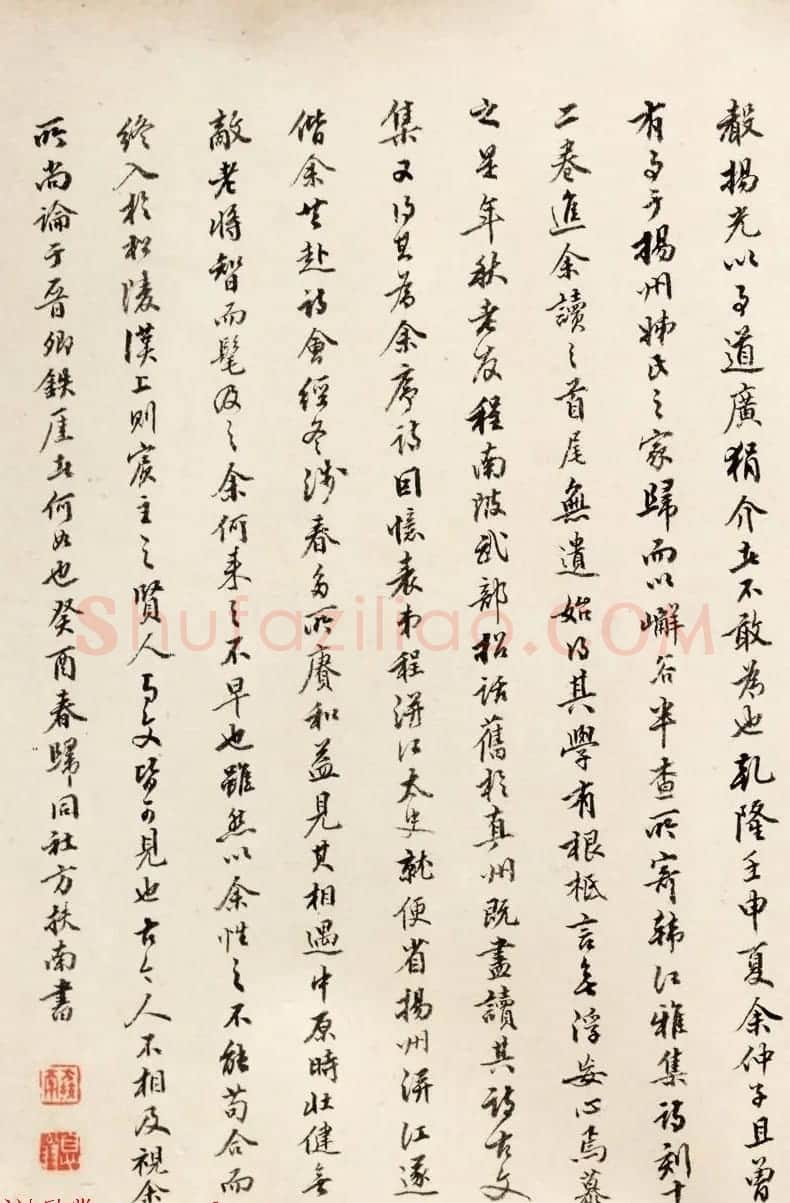 声揚光以为道廣狷介者不敢為也乾隆壬申夏余仲子且曾
有事于揚州姊氏之家歸而以嶰谷半查所寄韩江雅集詩刻十
二卷進余讀之首尾無遺始得其學有根柢言無浮妄心焉慕
之是年秋老友程南陂武部招話舊於真州既盡讀其詩古文
集又得其為余序詩回憶表弟程洴江太史就便省揚州洴江遂
偕余共赴詩會經冬涉春多所賡和益見其相遇中原時壯健無
敵老將智而髦及之余何来之不早也雖然以余性之不能苟合而
終入於松陵漢上則賓主之賢人与文皆可見也古今人不相及視余
所尚論于晋卿鉄厓者何如也癸酉春歸同社方扶南書
Shufaziliao.COM